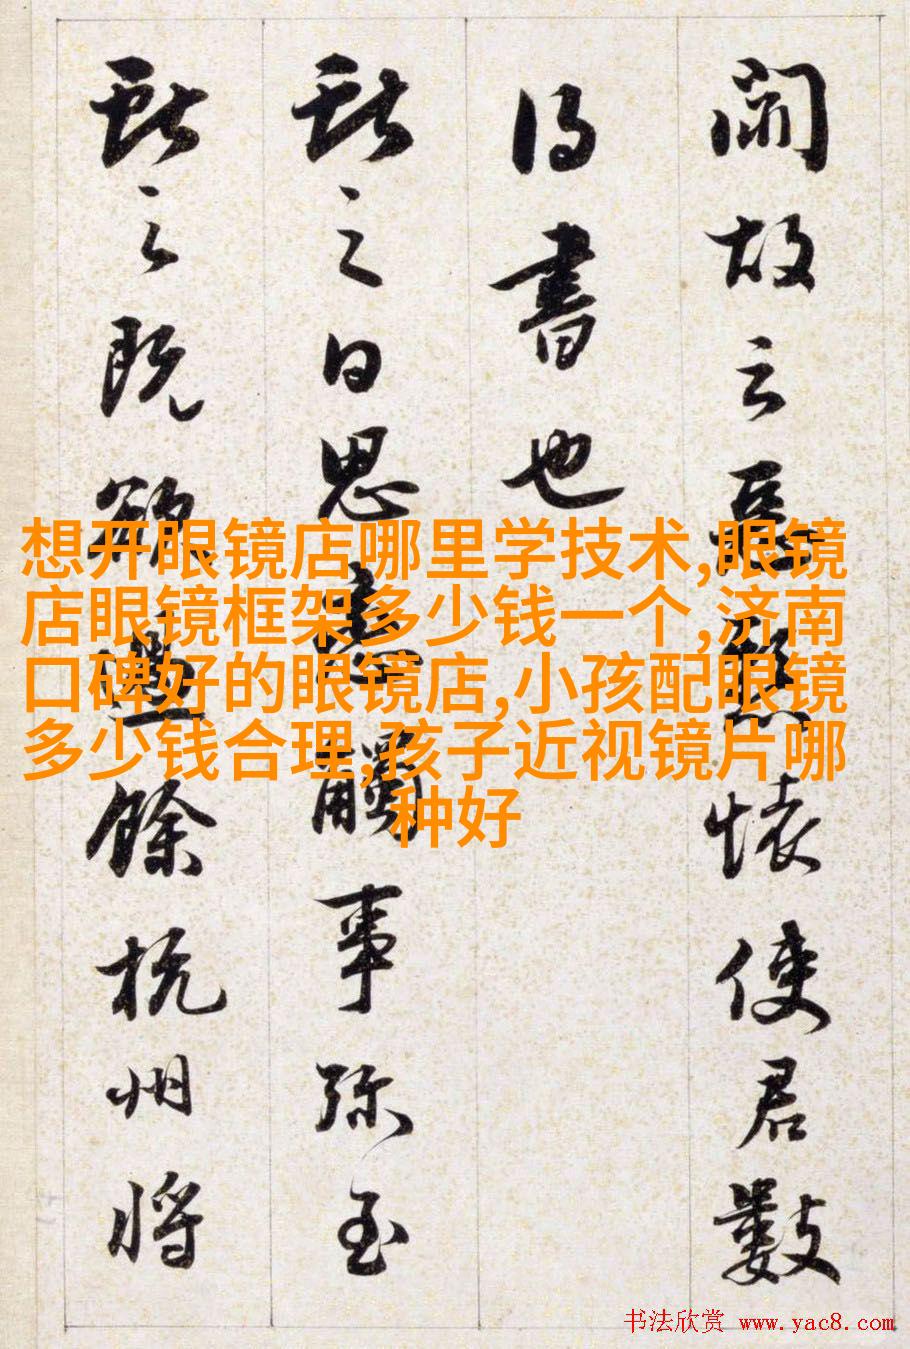 故云惡懸懷使君數
得書也
獻之白思戀觸事弥至
獻之既欲過餘杭州將
想开眼镜店哪里学技术,眼镜
店眼镜框架多少钱一个,济南
口碑好的眼镜店,小孩配眼镜
多少钱合理,孩子近视镜片哪
种好
书法欣赏 www.yac8.com